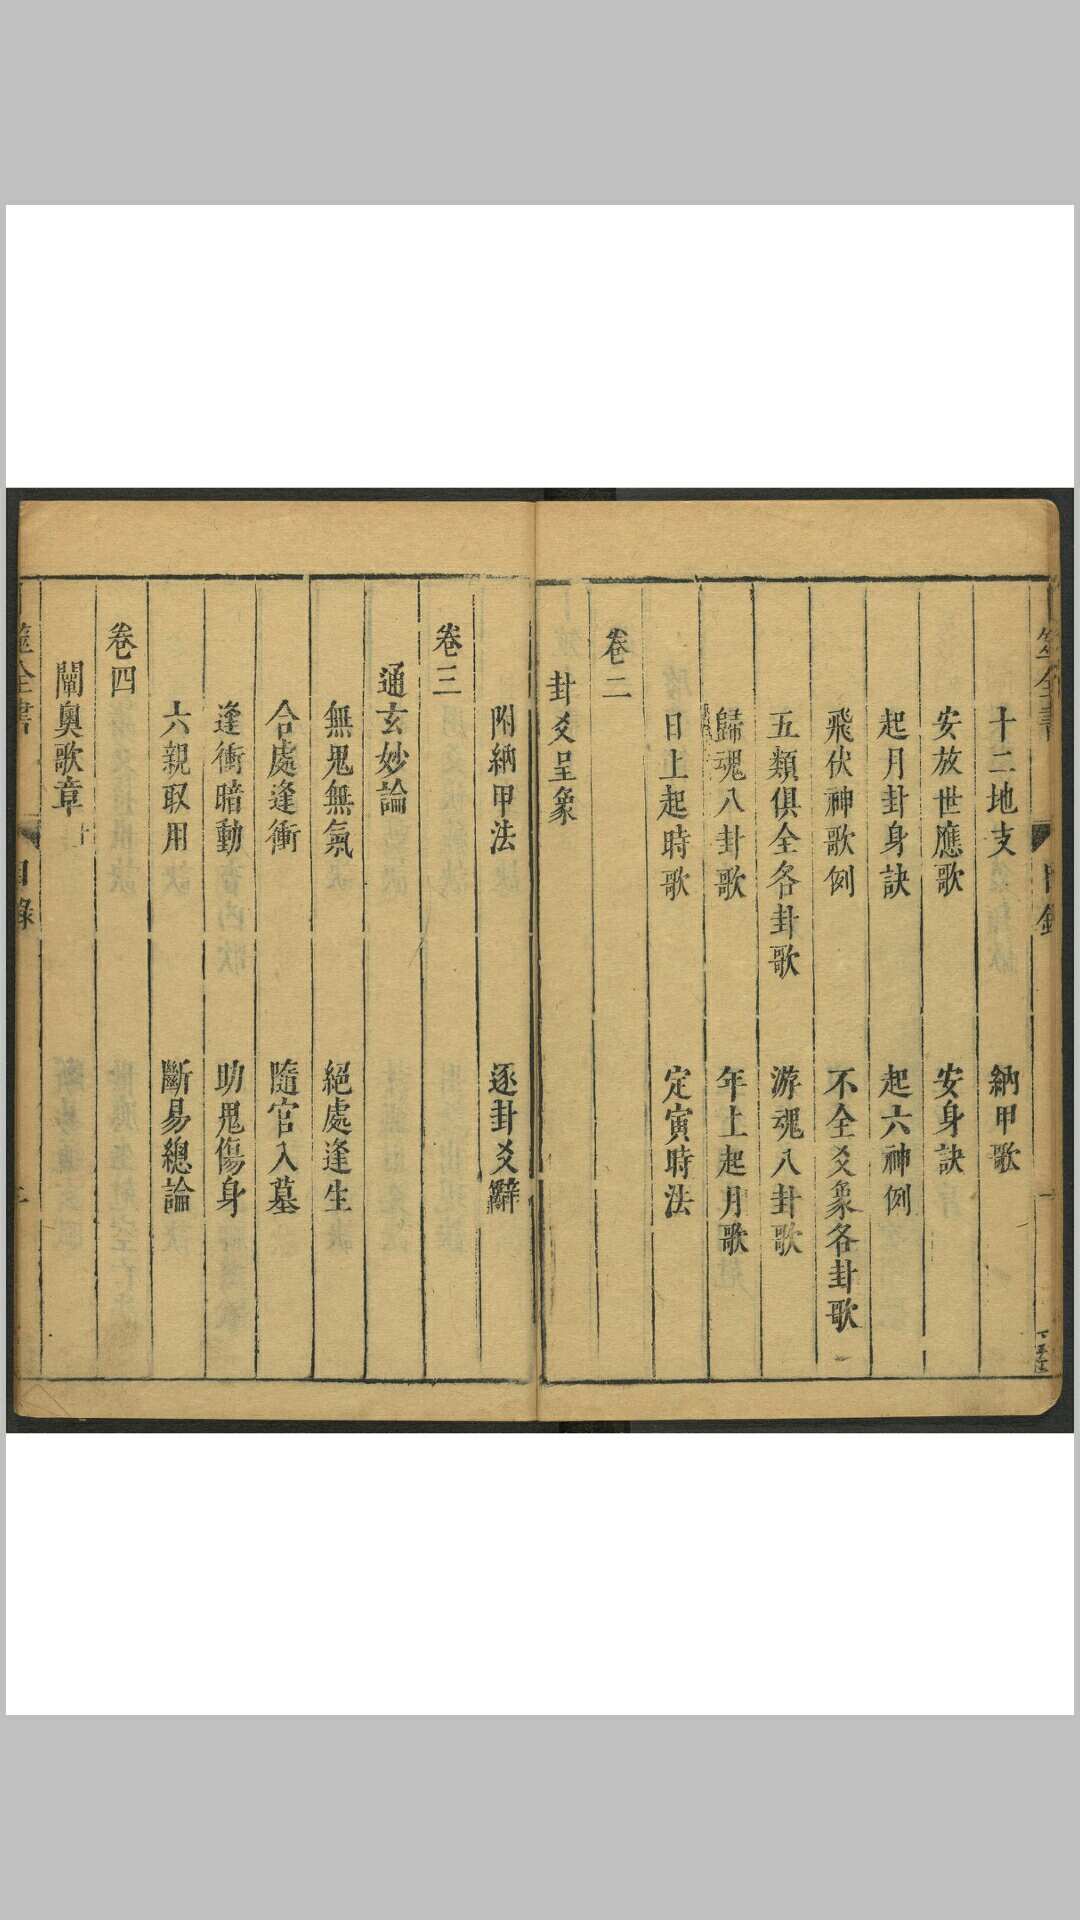 十二地支 納甲歌
安放世應歌 安身訣
起月卦身訣 起六神例
飛伏神歌例 不全爻象各卦歌
五類俱全各卦歌 游魂八卦歌
歸魂八卦歌 年上起月歌
日上起時歌 定寅時法
卷二
卦爻呈象
附納甲法 逐卦爻辭
卷三
通玄妙論
無鬼無氣 絕處逢生
合處逢衝 隨官入墓
逢衝暗動 助鬼傷身
六親取用 斷易總論
卷四
闡奧歌章
全書
目錄